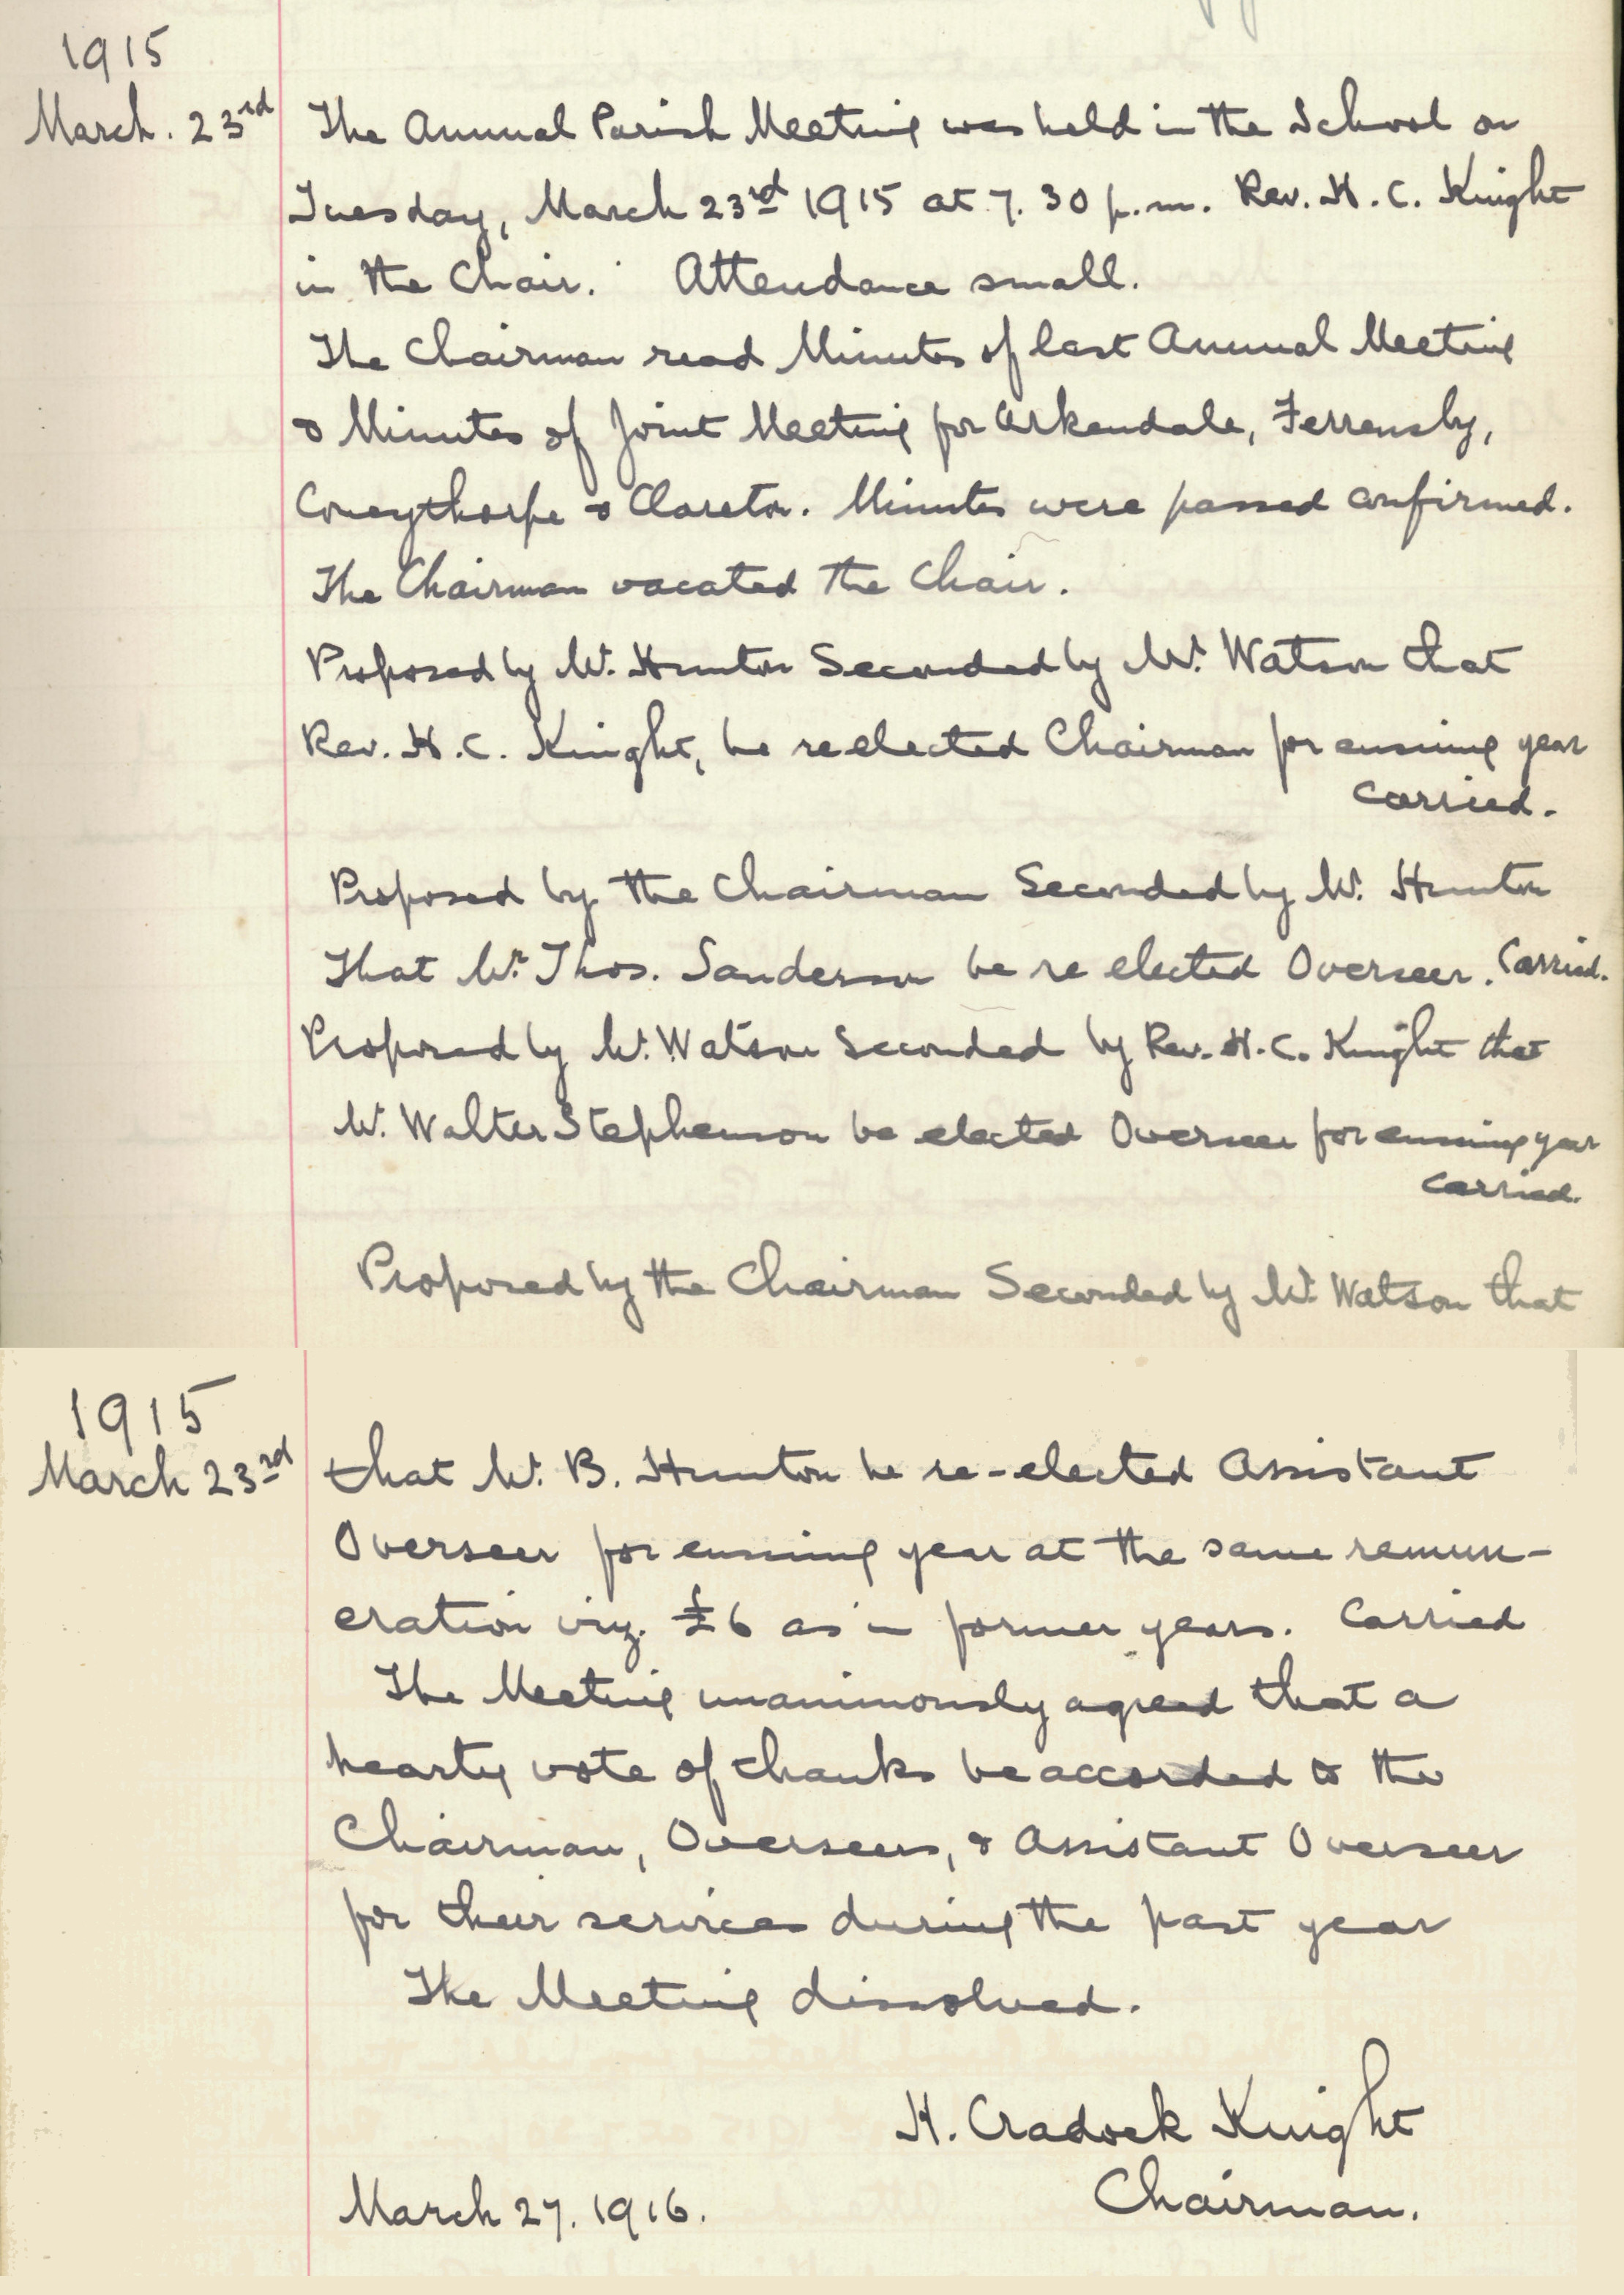 1915
March. 23rd
The Annual Parish Meeting was held in the School on
Tuesday, March 23rd 1915 at 7.30 p.m. Rev. H. C. Knight
in the Chair. Attendance small.
The Chairman read Minutes of last Annual Meeting
& Minutes of Joint Meeting for Arkendale, Ferrensby,
Coneythorpe & Clareton. Minutes were passed confirmed.
The Chairman vacated the Chair.
Proposed by Mr. Hunton Seconded by Mr. Watson that
Rev. H. C. Knight, be reelected Chairman for ensuing year
Carried.
Proposed by the Chairman Seconded by Mr. Hunton
That Mr. Thos. Sanderson be re elected Overseer. Carried.
Proposed by Mr. Watson Seconded by Rev. H. C. Knight that
Mr. Walter Stephenson be elected Overseer for ensuing year
Carried.
Proposed by the Chairman Seconded by Mr. Watson that
1915
March 23rd
that Mr. B. Hunton be re-elected Assistant
Overseer for ensuing year at the same remun-
eration viz. £6 as in former years. Carried
The Meeting unanimously agreed that a
hearty vote of thanks be accorded to the
Chairman, Overseers, & Assistant Overseer
for their services during the past year
The Meeting dissolved.
H. Cradock Knight
Chairman.
March 27. 1916.